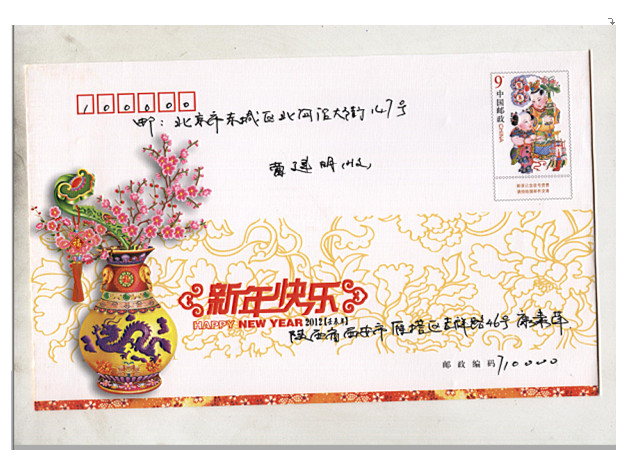 100000
邮：北京市东城区北河沿大街147号
9
中国邮政
CHINA
新年快乐
HAPPY NEW YEAR 2012
陕西省西安市雁塔区吉祥路46号
邮政编码 710000